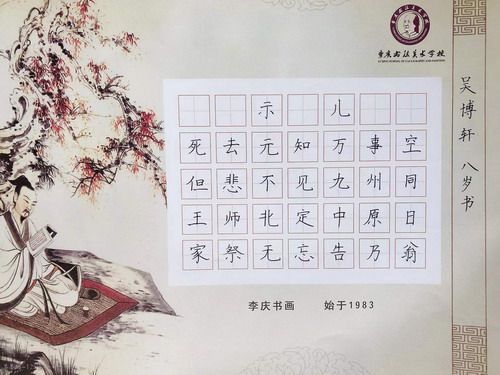 李庆书法美术学校
示儿
死去元知万事空
但悲不见九州同
王师北定中原日
家祭无忘告乃翁
吴博轩 八岁书
李庆书画 始于1983